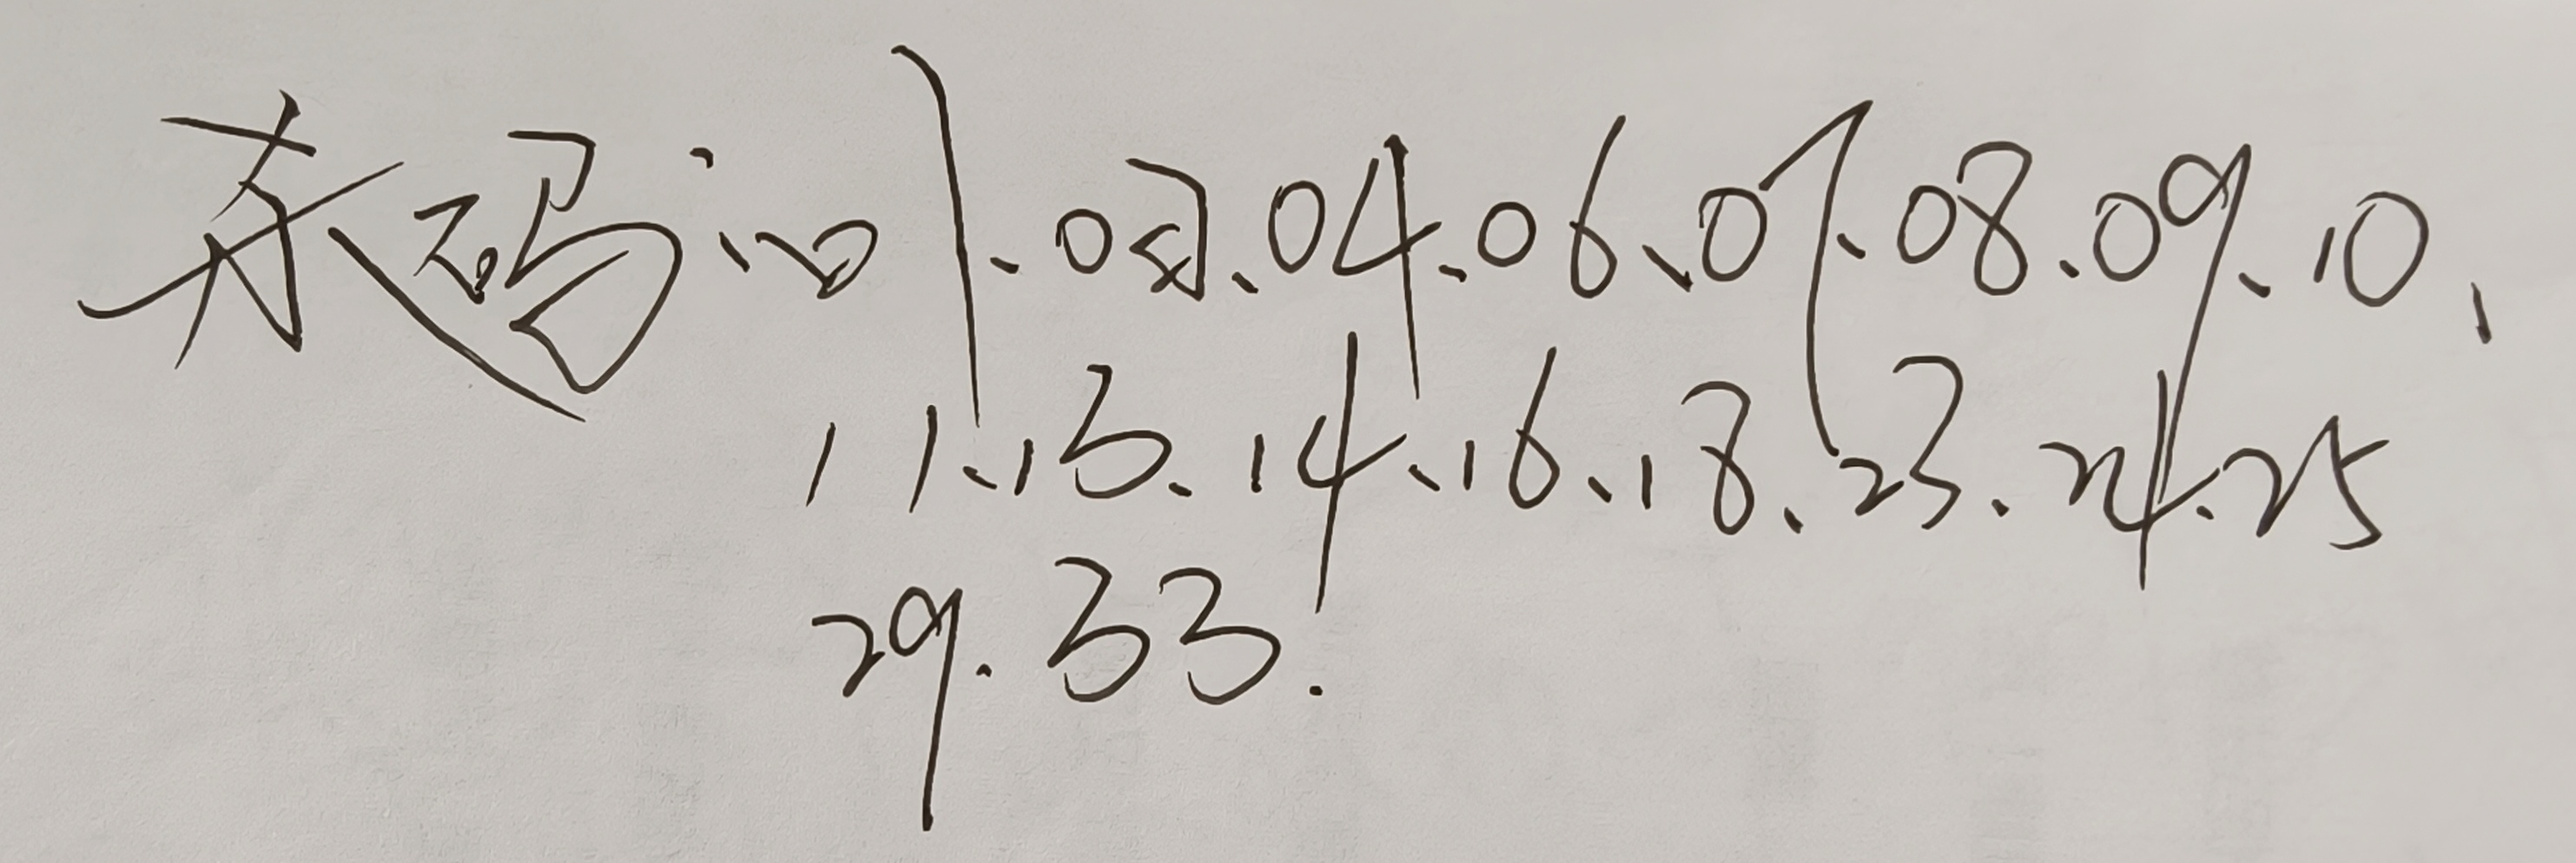 杀码:01.03.04.06.07.08.09.10、
11.13.14.16.18.23.24.25
29.33.